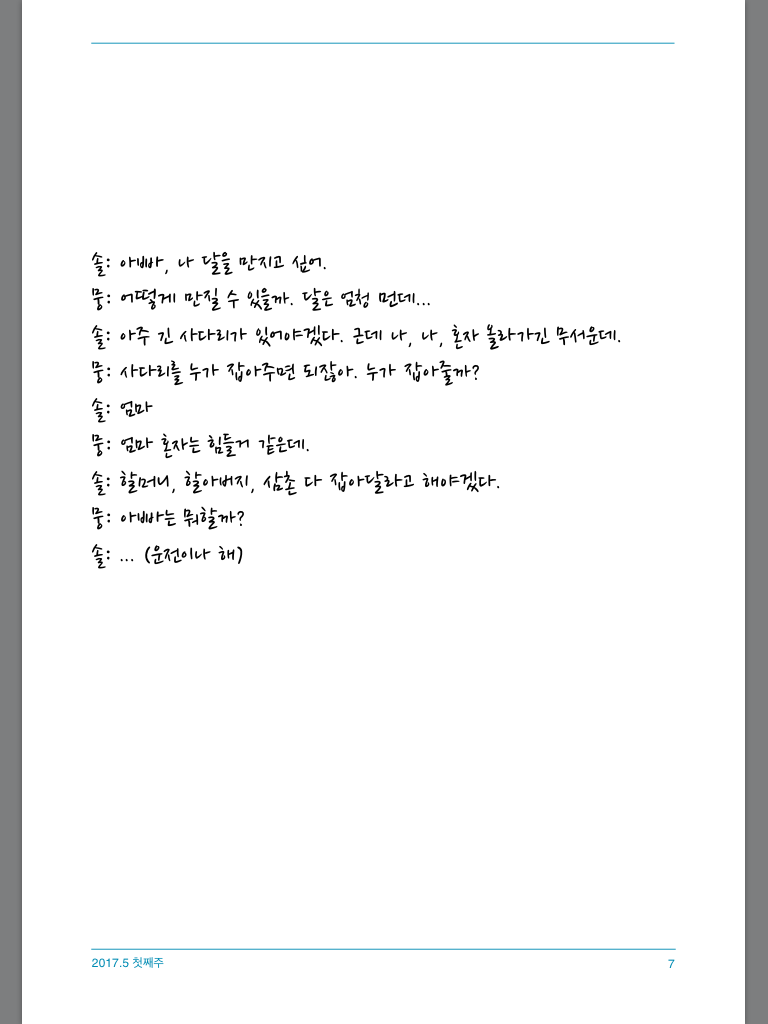 솔: 아빠, 나 달을 만지고 싶어.
뭉: 어떻게 만질 수 있을까. 달은 엄청 먼데...
솔: 아주 긴 사다리가 있어야겠다. 근데 나, 나, 혼자 올라가긴 무서운데.
뭉: 사다리를 누가 잡아주면 되잖아. 누가 잡아줄까?
솔: 엄마
뭉: 엄마 혼자는 힘들거 같은데.
솔: 할머니, 할아버지, 삼촌 다 잡아달라고 해야겠다.
뭉: 아빠는 뭐할까?
솔: ... (운전이나 해)
2017.5 첫째주
7